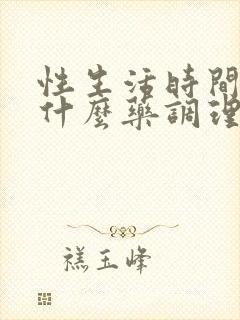 性生活時間
什麼藥調理
禚玉峰